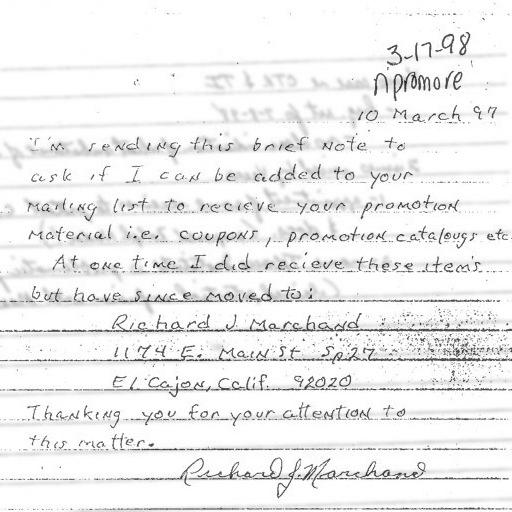 3-17-98
npromore
10 March 97
I'm sending this brief note to
ask if I can be added to your
mailing list to recieve your promotion
material i.e. coupons, promotion catalougs etc.
At one time I did recieve these items
but have since moved to:
Richard J Marchand
1174 E. Main St Sp27
El Cajon, Calif. 92020
Thanking you for your attention to
this matter.
Richard J. Marchand